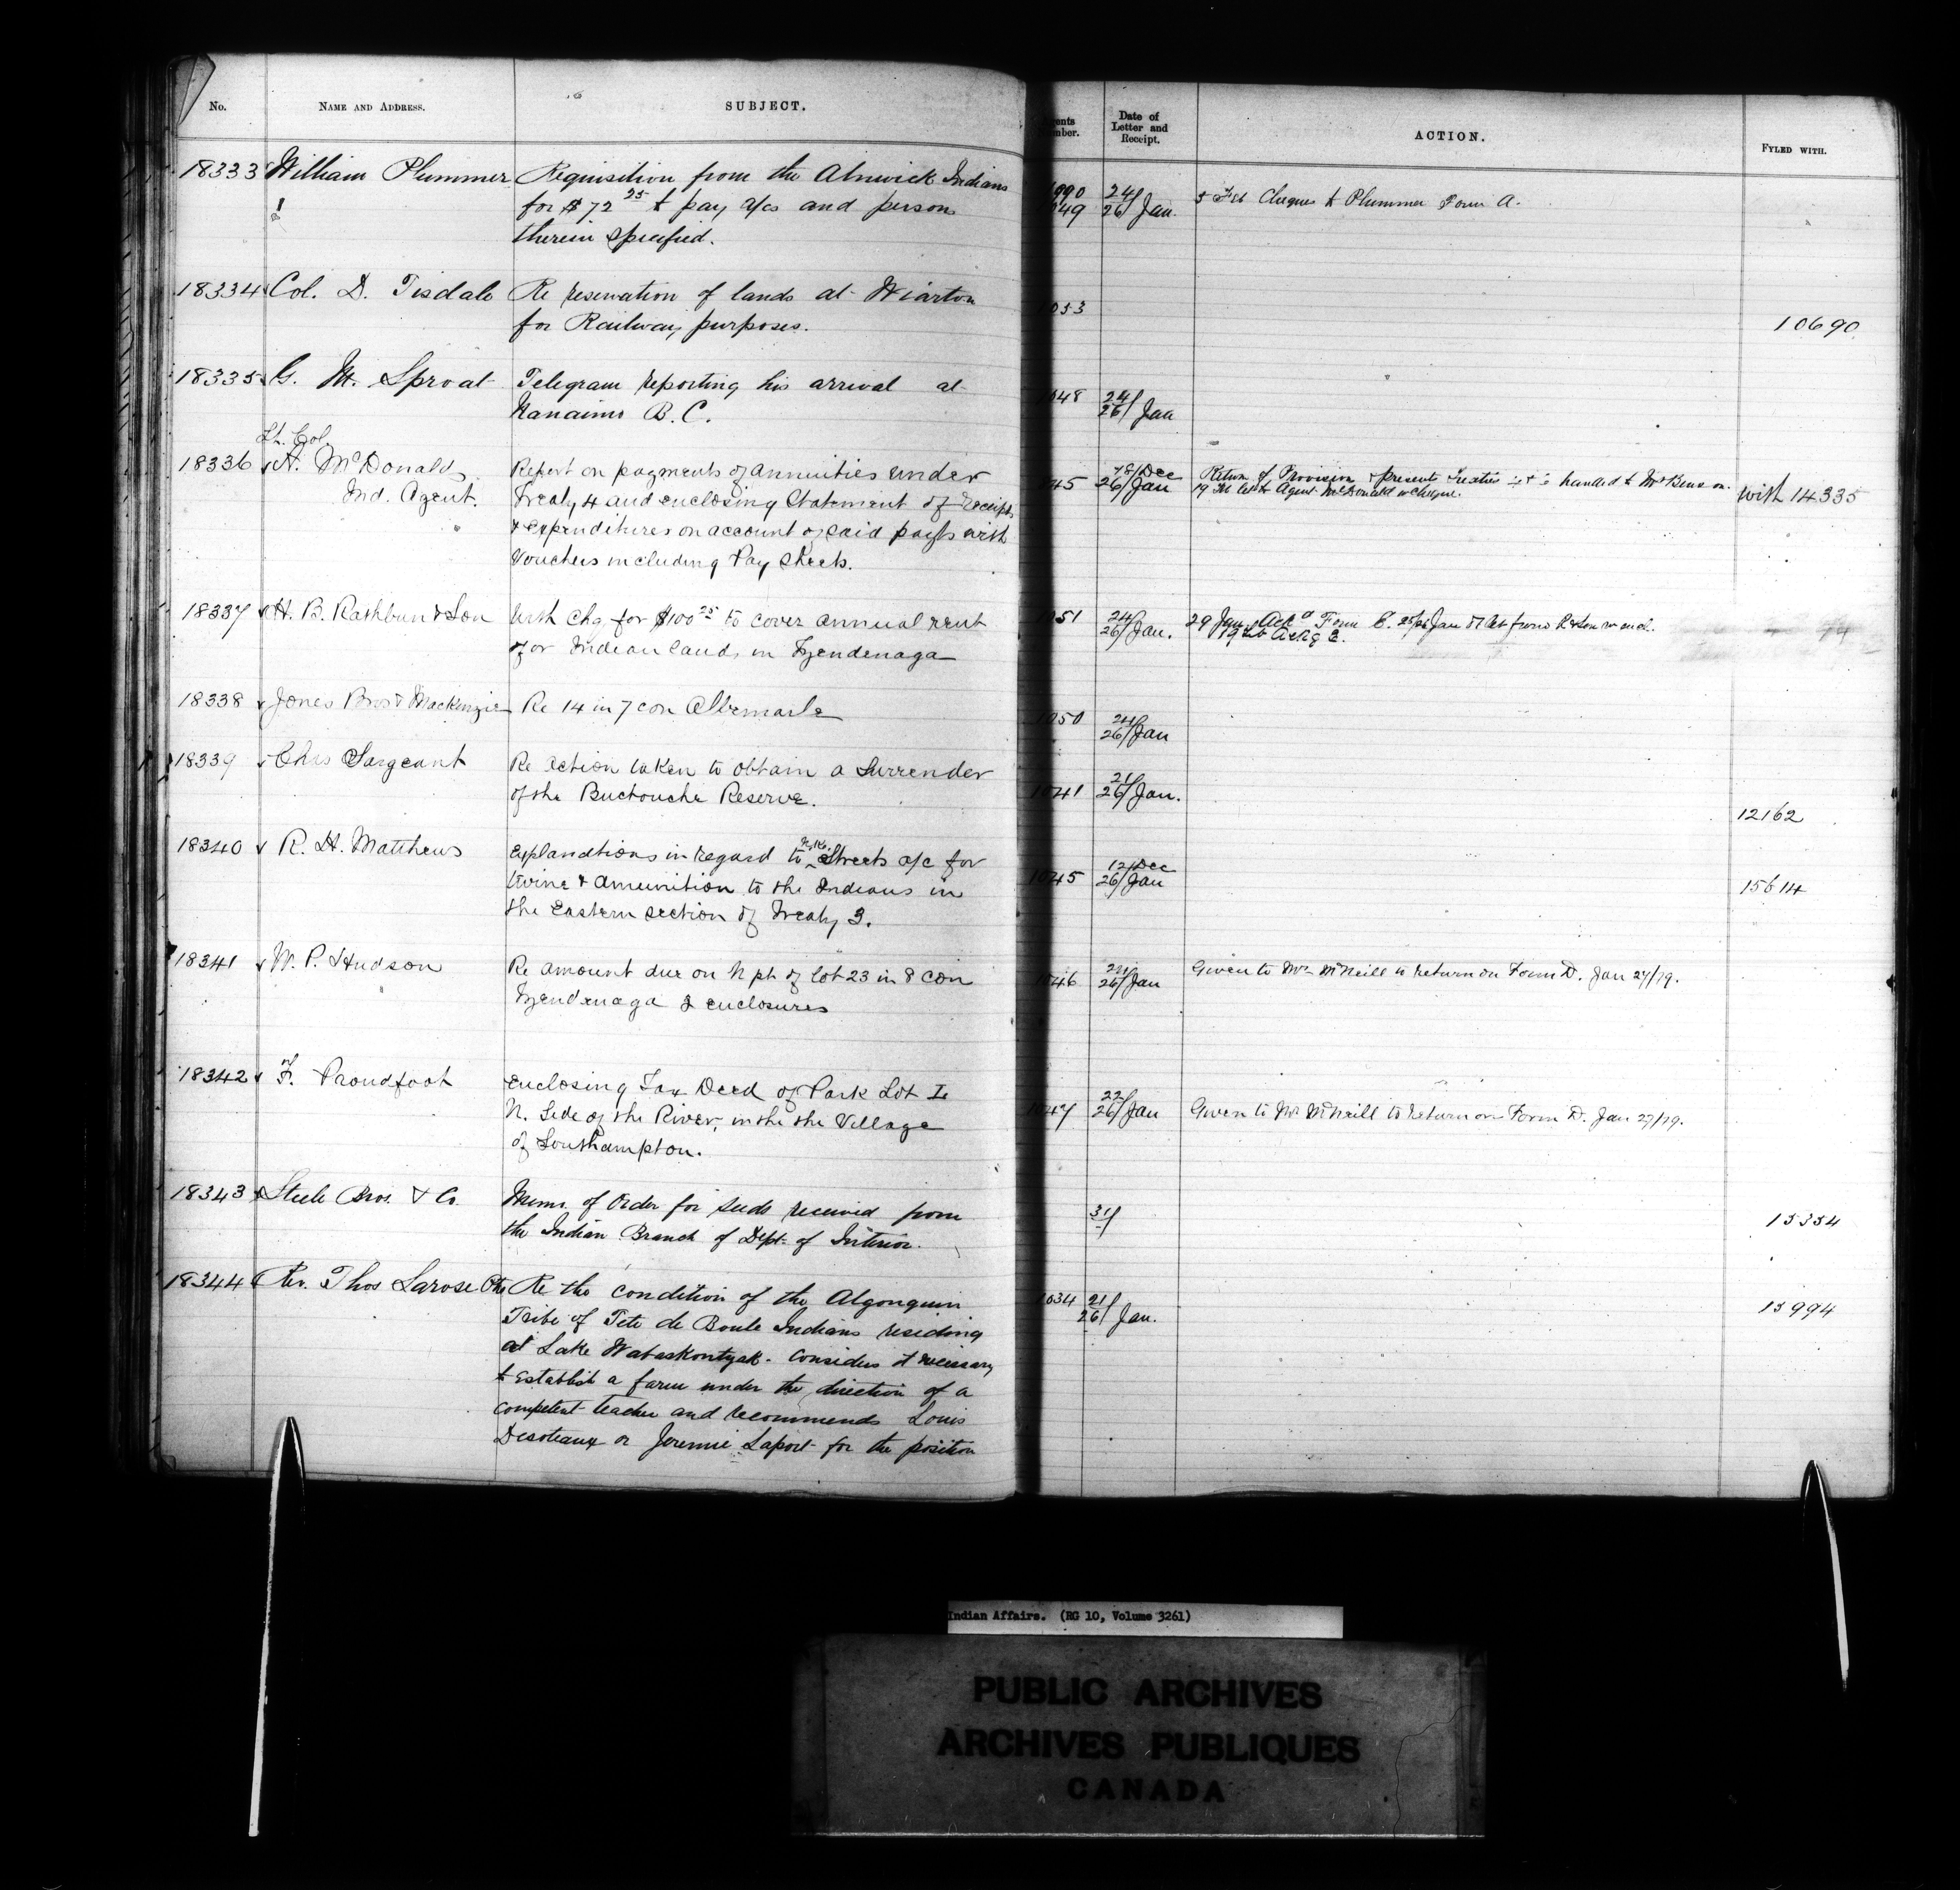 No. NAME AND ADDRESS. SUBJECT. Date of Letter and Receipt. ACTION. FYLED WITH.
18333 William Plummer Requisition from the Alnwick Indians
for $72 25 to pay a/cs and persons
therein specified.
24/26 Jan. 5 Feb Cheques to Plummer Form A.
18334 Col. D. Tisdale Re reservation of lands at Wiarton
for Railway purposes.
1053 10690
18335 G. M. Sproat Telegram reporting his arrival at
Nanaimo B.C.
1048 24/26 Jan
Lt. Col.
18336 A. McDonald Report on payments of annuities under
Ind. Agent. Treaty 4 and enclosing Statement of Receipts
& expenditures on account of said payts with
Vouchers including Pay Sheets.
1045 18/Dec 26/Jan Return of Provision & presents handed to Mr Benson.
19 Feb let to Agent McDonald w cheque.
with 14335
18337 H. B. Rathbun & Son With chq for $100 25 to cover annual rent
of or Indian land, in Tyendenaga
1051 24/26 Jan. 29 Jan Ackd Form C.
18338 Jones Bros & Mackenzie Re 14 in 7 con Albemarle
1050 24/26 Jan
18339 Chas Sargeant Re action taken to obtain a Surrender
of the Buctouche Reserve.
1041 21/26 Jan. 12162
18340 R. H. Matthews Explanations in regard to Streets a/c for
twine & amunition to the Indians in
the Eastern section of Treaty 3.
1045 12/Dec 26/Jan 15614
18341 W. P. Hudson Re amount due on N pt of lot 23 in 8 con
Tyendenaga 2 enclosures
1046 26/Jan Given to Mr McNeill to return on Form D. Jan 27/79.
18342 F. Proudfoot Enclosing Tax Deed of Park Lot I
N. Side of the River, in the the Village
of Southampton.
1047 22/26 Jan Given to Mr McNeill to return on Form D. Jan 27/79.
18343 Steele Bros. & Co. Memo. of Order for seeds received from
the Indian Branch of Dept. of Interior.
31/ 15354
18344 Rev. Thos Larose Ptre Re the condition of the Algonquin
Tribe of Tete de Boule Indians residing
at Lake Wabaskontyak. Considers it necessary
to establish a farm under the direction of a
competent teacher and recommends Louis
Desoteaux or Jeremie Laport for the position
1034 21/26 Jan. 15994
Indian Affairs. (RG 10, Volume 3261)
PUBLIC ARCHIVES
ARCHIVES PUBLIQUES
CANADA